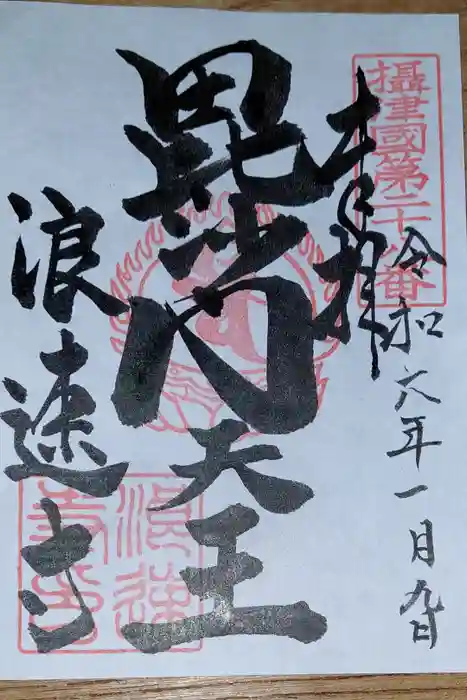 奉拝
令和六年一月九日
攝津國第二十八番
毘沙門天王
浪速寺
浪速寺印